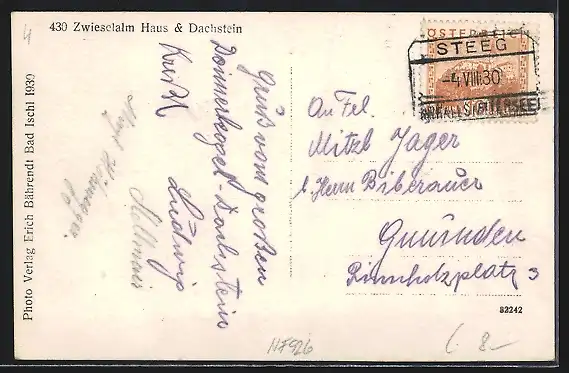 4
430 Zwieselalm Haus & Dachstein
Photo Verlag Erich Bährendt Bad Ischl 1930
ÖSTERREICH
STEEG
-4.VIII.30
AM HALLSTÄTTERSEE
Gruß vom großen
Donnerkogel - Dachstein
Ludwig
An Frl.
Mitzl Jager
b. Herrn Biberauer
Gmunden
Rinnholzplatz 3
82242
117926
8-